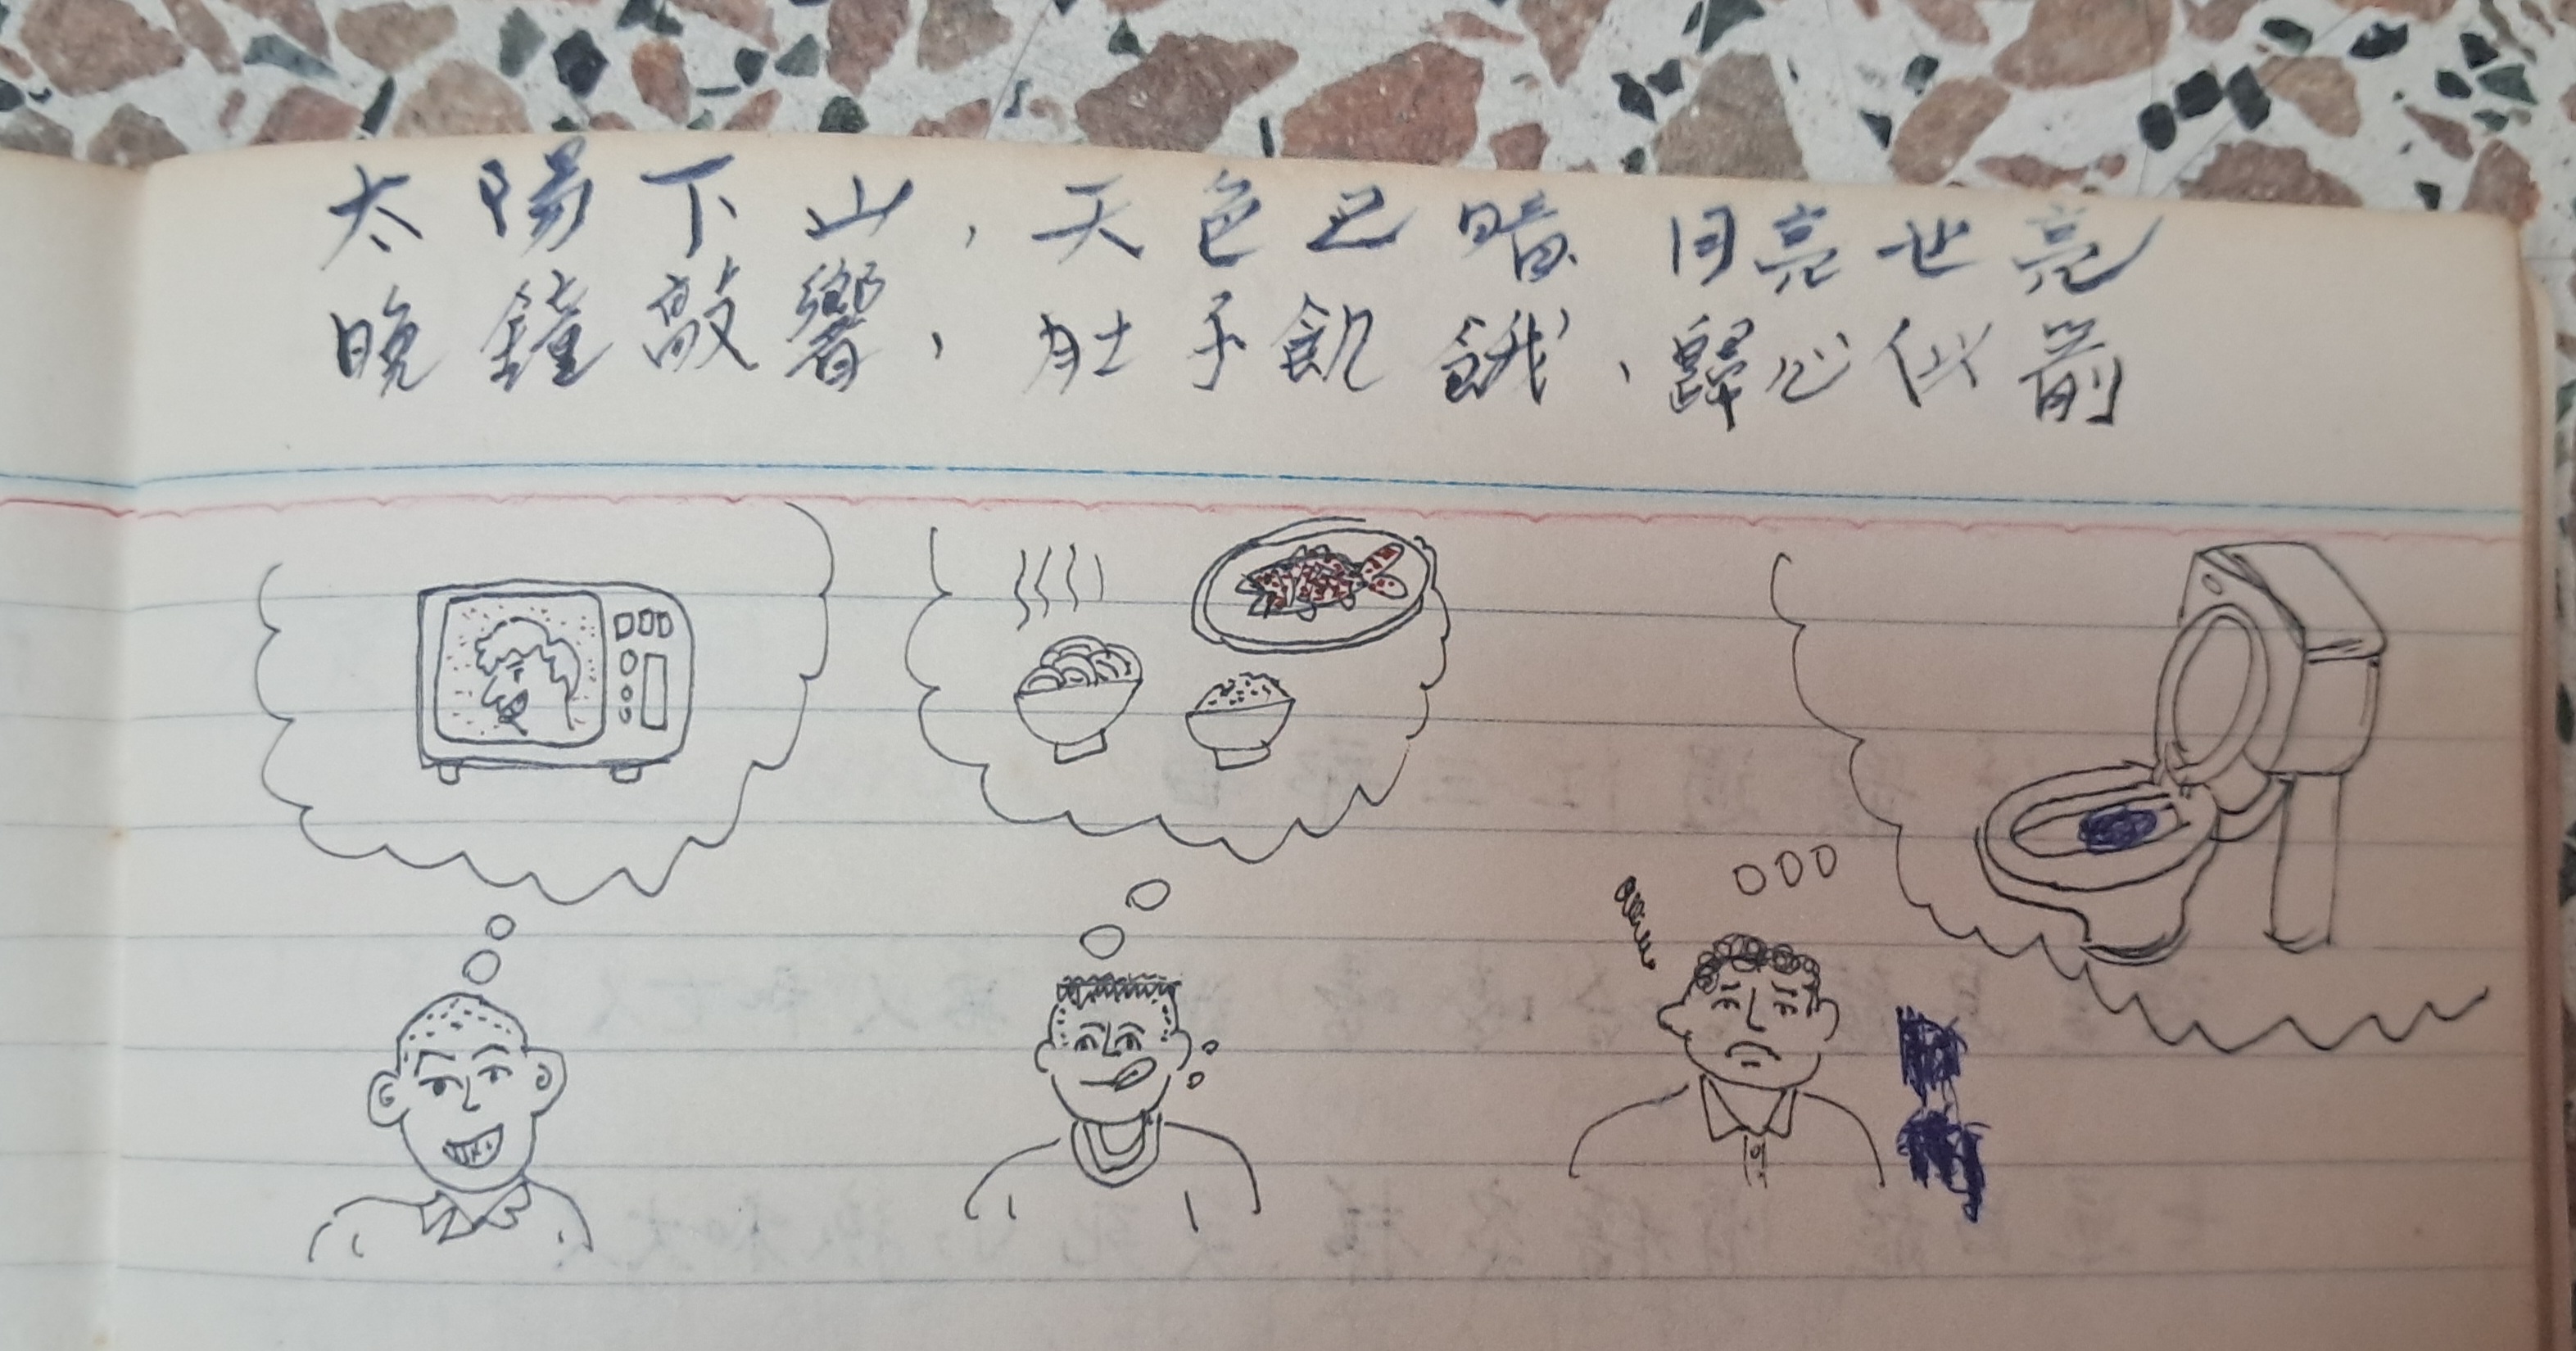 太陽下山,天色已暗,月亮也亮
晚鐘敲響,肚子飢餓,歸心似箭